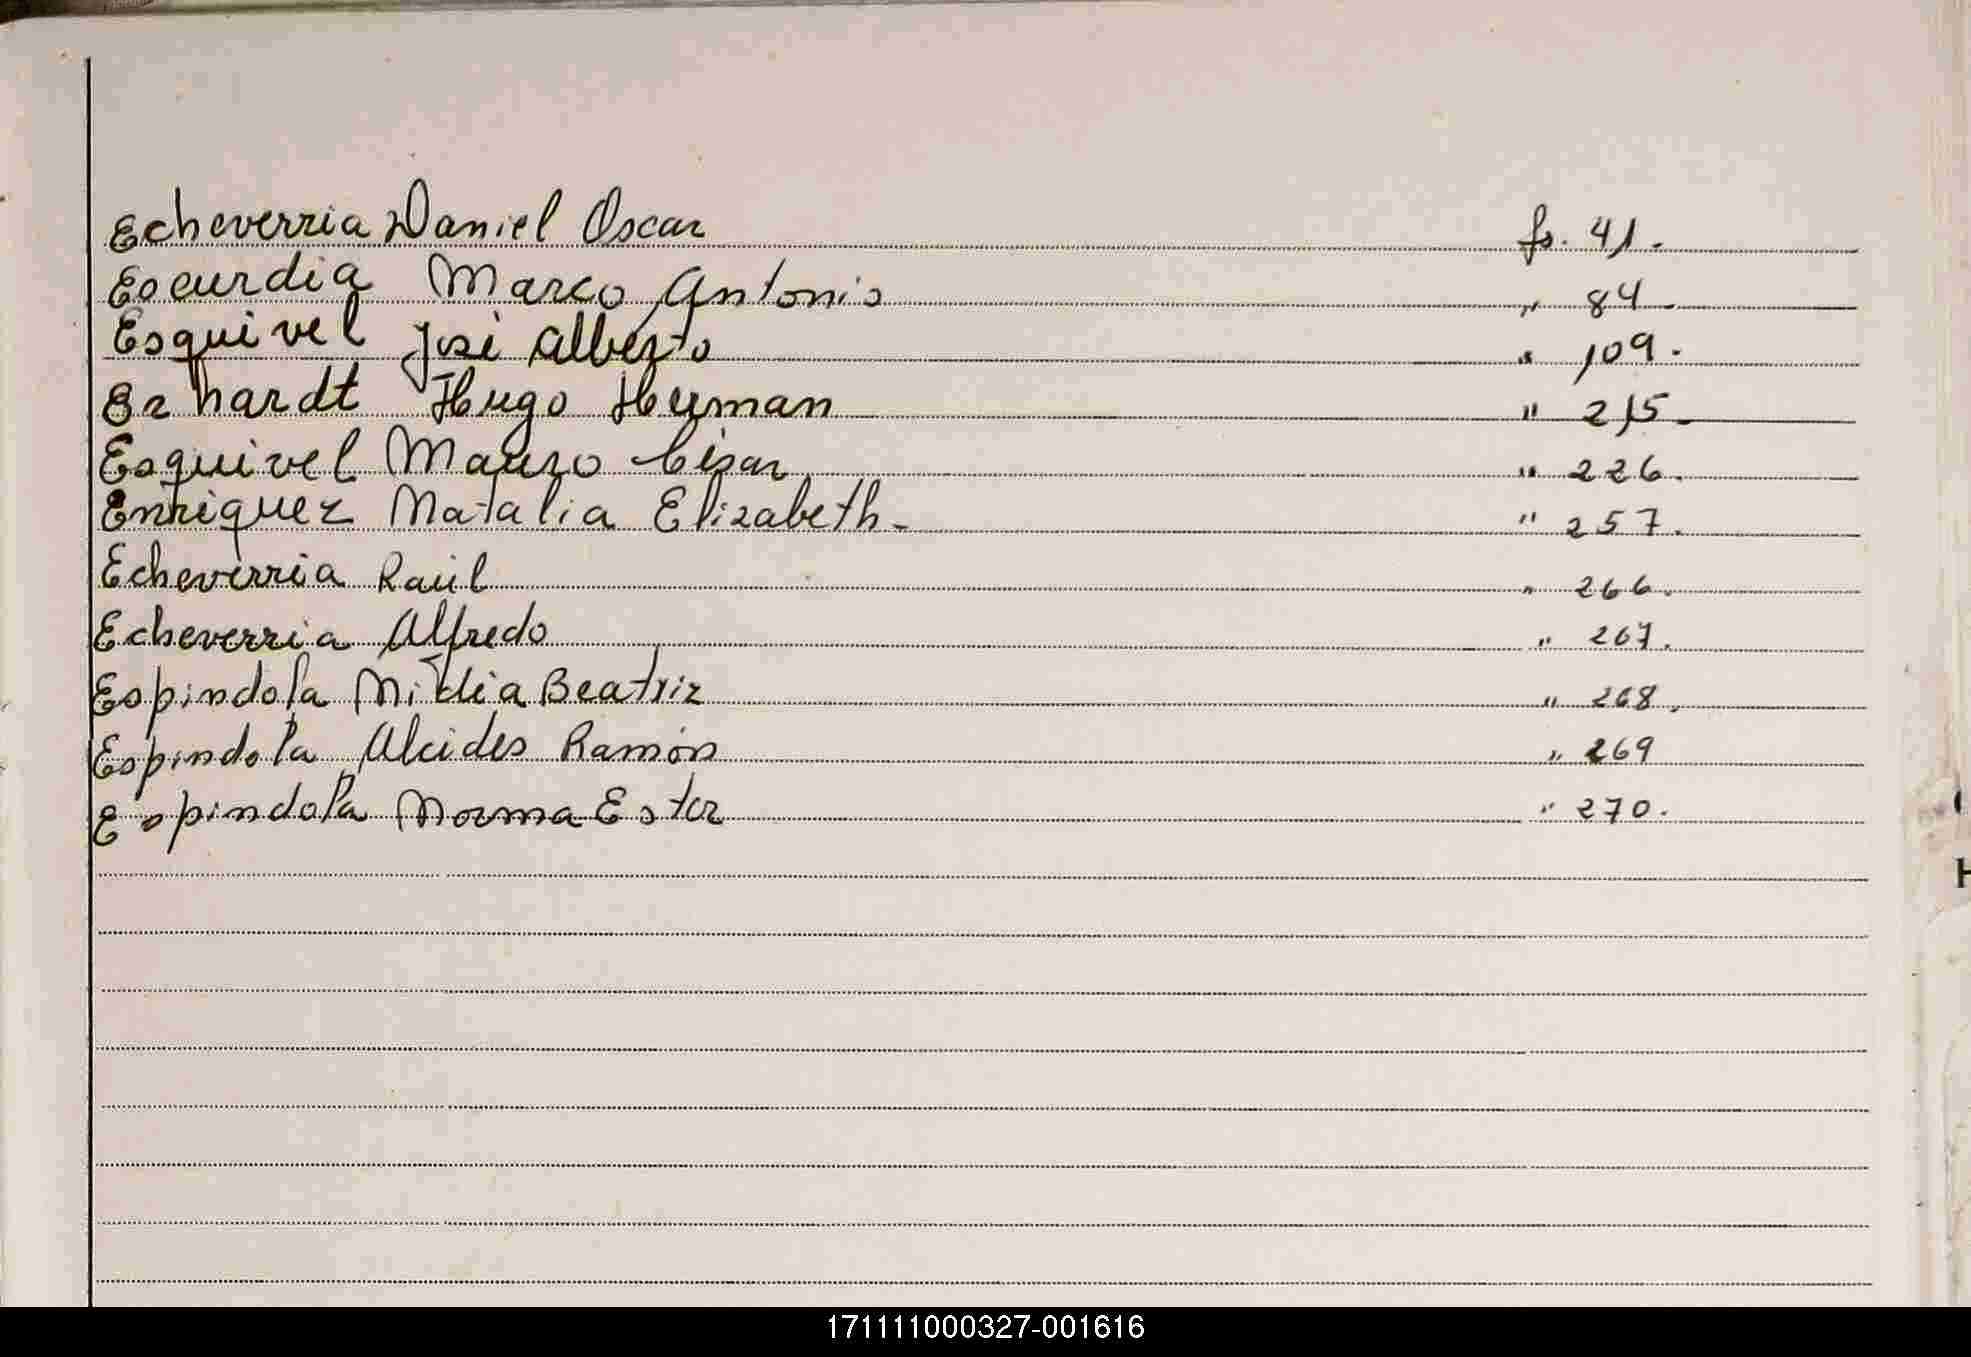 Echeverria Daniel Oscar fs. 41.
Escurdia Marco Antonio " 84
Esquivel José Alberto " 109.
Erhardt Hugo Herman " 215.
Esquivel Mauro César " 226.
Enriquez Natalia Elizabeth. " 257.
Echeverria Raúl " 266.
Echeverria Alfredo " 267.
Espindola Beatriz " 268.
Espindola Alcides Ramón " 269
Espindola Norma Ester " 270.
H
171111000327-001616